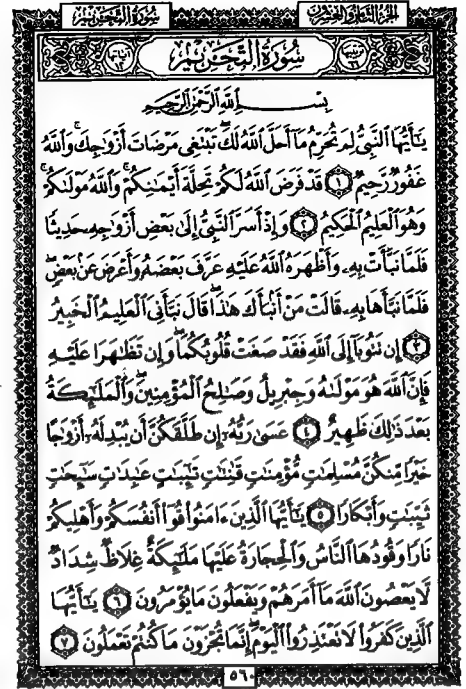 الجزء الثامن والعشرون
سورة التحريم
ترتيبها ٦٦
سُورَةُ التَّحْرِيمِ
آياتها ١٢
بِسْمِ اللَّهِ الرَّحْمَٰنِ الرَّحِيمِ
يَـٰٓأَيُّهَا ٱلنَّبِىُّ لِمَ تُحَرِّمُ مَآ أَحَلَّ ٱللَّهُ لَكَ ۖ تَبْتَغِى مَرْضَاتَ أَزْوَٰجِكَ ۚ وَٱللَّهُ
غَفُورٌ رَّحِيمٌ ١ قَدْ فَرَضَ ٱللَّهُ لَكُمْ تَحِلَّةَ أَيْمَـٰنِكُمْ ۚ وَٱللَّهُ مَوْلَىٰكُمْ ۖ
وَهُوَ ٱلْعَلِيمُ ٱلْحَكِيمُ ٢ وَإِذْ أَسَرَّ ٱلنَّبِىُّ إِلَىٰ بَعْضِ أَزْوَٰجِهِۦ حَدِيثًا
فَلَمَّا نَبَّأَتْ بِهِۦ وَأَظْهَرَهُ ٱللَّهُ عَلَيْهِ عَرَّفَ بَعْضَهُۥ وَأَعْرَضَ عَنۢ بَعْضٍ ۖ
فَلَمَّا نَبَّأَهَا بِهِۦ قَالَتْ مَنْ أَنۢبَأَكَ هَـٰذَا ۖ قَالَ نَبَّأَنِىَ ٱلْعَلِيمُ ٱلْخَبِيرُ
٣ إِن تَتُوبَآ إِلَى ٱللَّهِ فَقَدْ صَغَتْ قُلُوبُكُمَا ۖ وَإِن تَظَـٰهَرَا عَلَيْهِ
فَإِنَّ ٱللَّهَ هُوَ مَوْلَىٰهُ وَجِبْرِيلُ وَصَـٰلِحُ ٱلْمُؤْمِنِينَ ۖ وَٱلْمَلَـٰٓئِكَةُ
بَعْدَ ذَٰلِكَ ظَهِيرٌ ٤ عَسَىٰ رَبُّهُۥٓ إِن طَلَّقَكُنَّ أَن يُبْدِلَهُۥٓ أَزْوَٰجًا
خَيْرًا مِّنكُنَّ مُسْلِمَـٰتٍ مُّؤْمِنَـٰتٍ قَـٰنِتَـٰتٍ تَـٰٓئِبَـٰتٍ عَـٰبِدَٰتٍ سَـٰٓئِحَـٰتٍ
ثَيِّبَـٰتٍ وَأَبْكَارًا ٥ يَـٰٓأَيُّهَا ٱلَّذِينَ ءَامَنُوا۟ قُوٓا۟ أَنفُسَكُمْ وَأَهْلِيكُمْ
نَارًا وَقُودُهَا ٱلنَّاسُ وَٱلْحِجَارَةُ عَلَيْهَا مَلَـٰٓئِكَةٌ غِلَاظٌ شِدَادٌ
لَّا يَعْصُونَ ٱللَّهَ مَآ أَمَرَهُمْ وَيَفْعَلُونَ مَا يُؤْمَرُونَ ٦ يَـٰٓأَيُّهَا
ٱلَّذِينَ كَفَرُوا۟ لَا تَعْتَذِرُوا۟ ٱلْيَوْمَ ۖ إِنَّمَا تُجْزَوْنَ مَا كُنتُمْ تَعْمَلُونَ ٧
٥٦٠